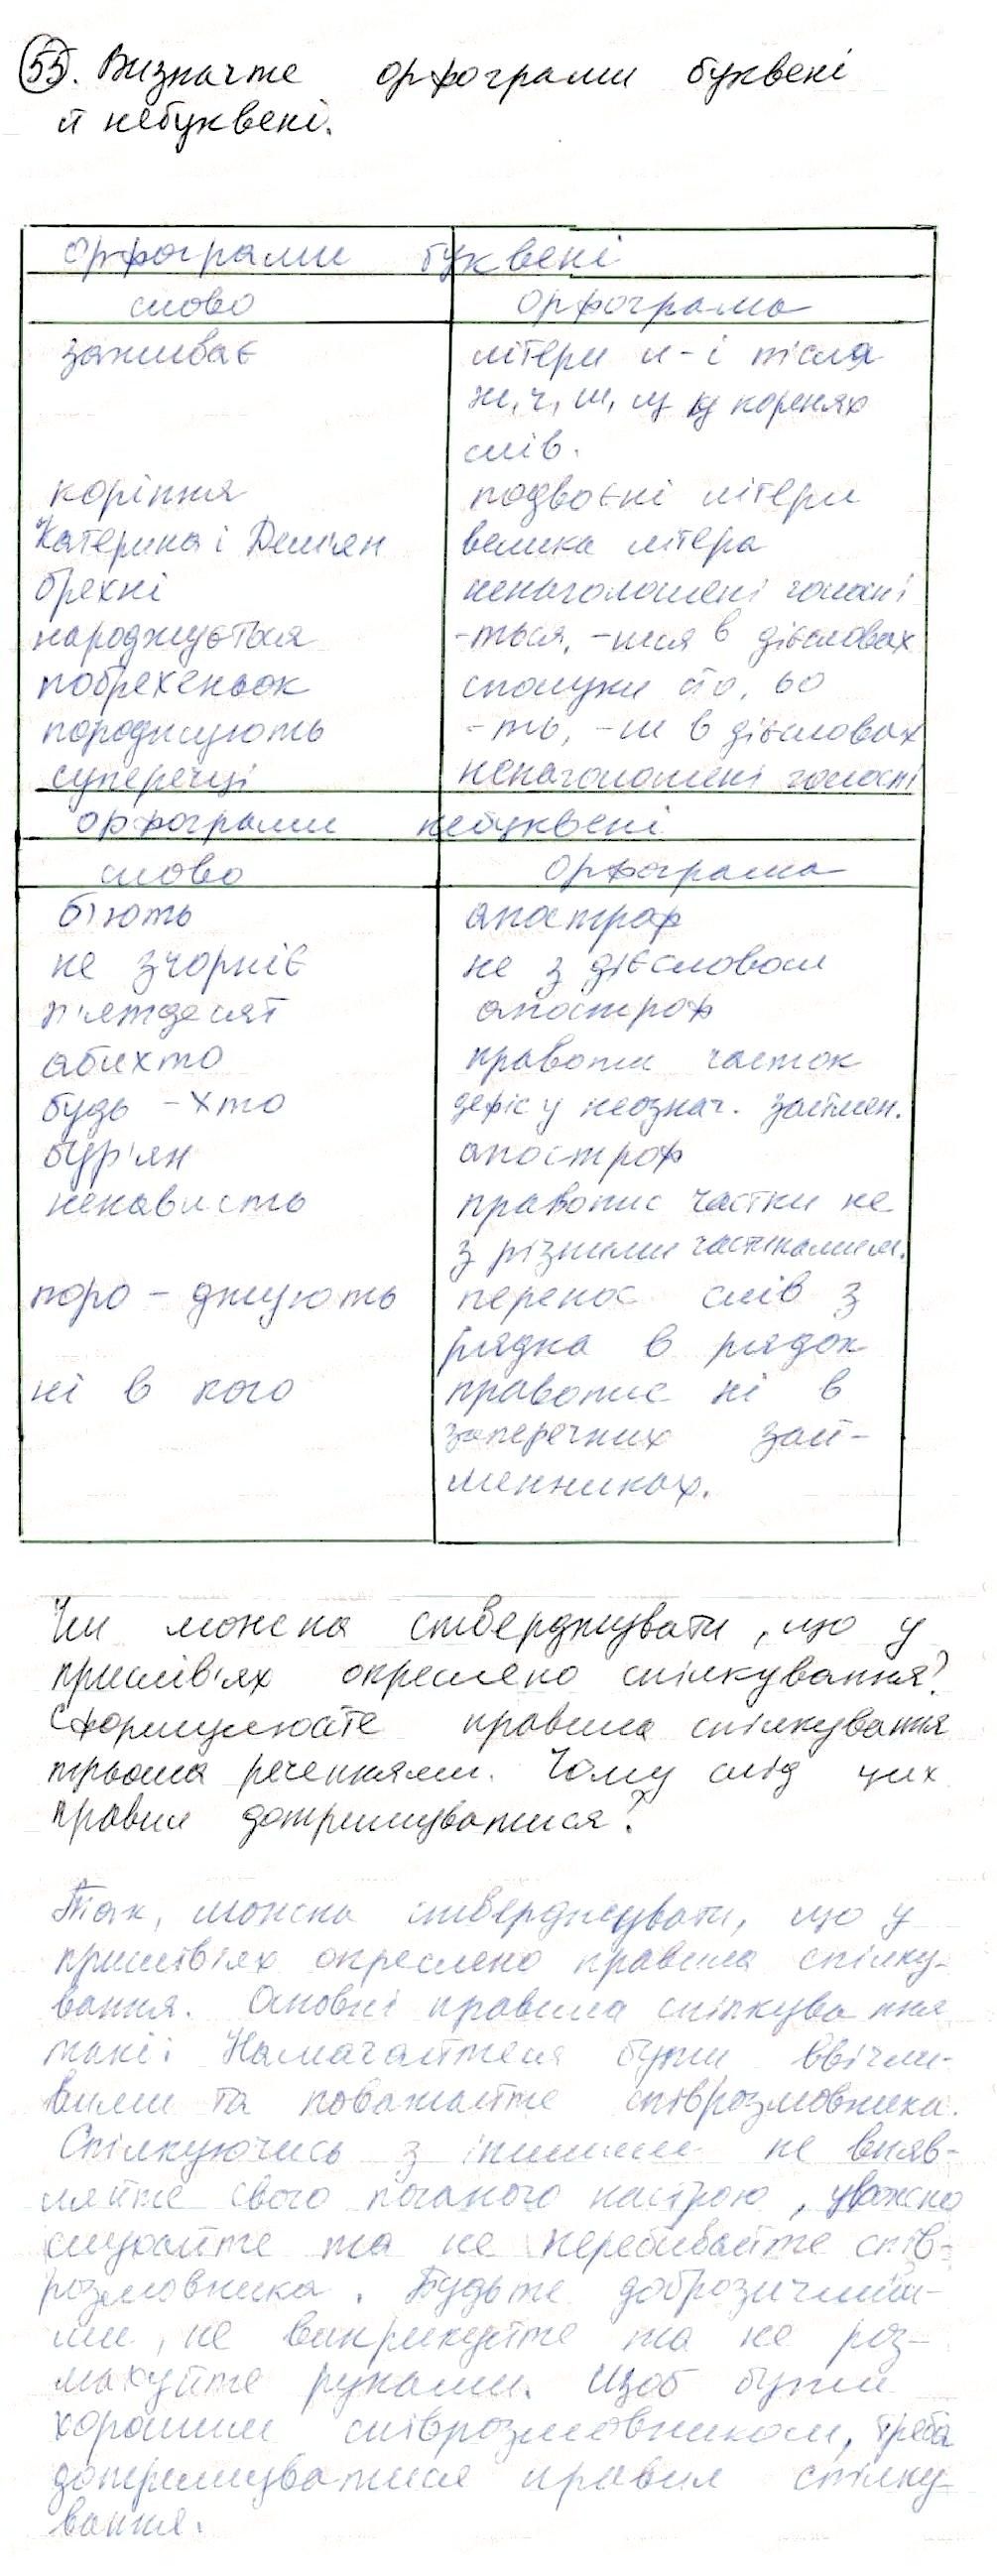 55. Визначте орфограми буквені
й небуквені.
орфограми буквені
слово орфограма
заживає літери и-і після
ж, ч, ш, щ у коренях
слів.
коріння подвоєні літери
Катерина і Дем'ян велика літера
брехні ненаголошені голосні
народжується -ться, -шся в дієсловах
побрехеньок сполуки йо, ьо
породжують -ть, -ш в дієсловах
суперечці ненаголошені голосні
орфограми небуквені
слово орфограма
б'ють апостроф
не зчорніє не з дієсловом
п'ятдесят апостроф
абихто правопис часток
будь-хто дефіс у неознач. займен.
бур'ян апостроф
ненависть правопис частки не
з різними част.
поро-джують перенос слів з
рядка в рядок
ні в кого правопис ні в
заперечних зай-
менниках.
Чи можна стверджувати, що у
прислів'ях окреслено спілкування?
Сформулюйте правила спілкування
трьома реченнями. Чому слід цих
правил дотримуватися?
Так, можна стверджувати, що у
прислів'ях окреслено правила спілку-
вання. Основні правила спілкування
такі: Намагайтеся бути ввічли-
вими та поважайте співрозмовника.
Спілкуючись з іншими не вияв-
ляйте свого поганого настрою, уважно
слухайте та не перебивайте спів-
розмовника. Будьте доброзичливи-
ми, не викрикуйте та не роз-
махуйте руками. Щоб бути
хорошим співрозмовником, треба
дотримуватися правил спілку-
вання.